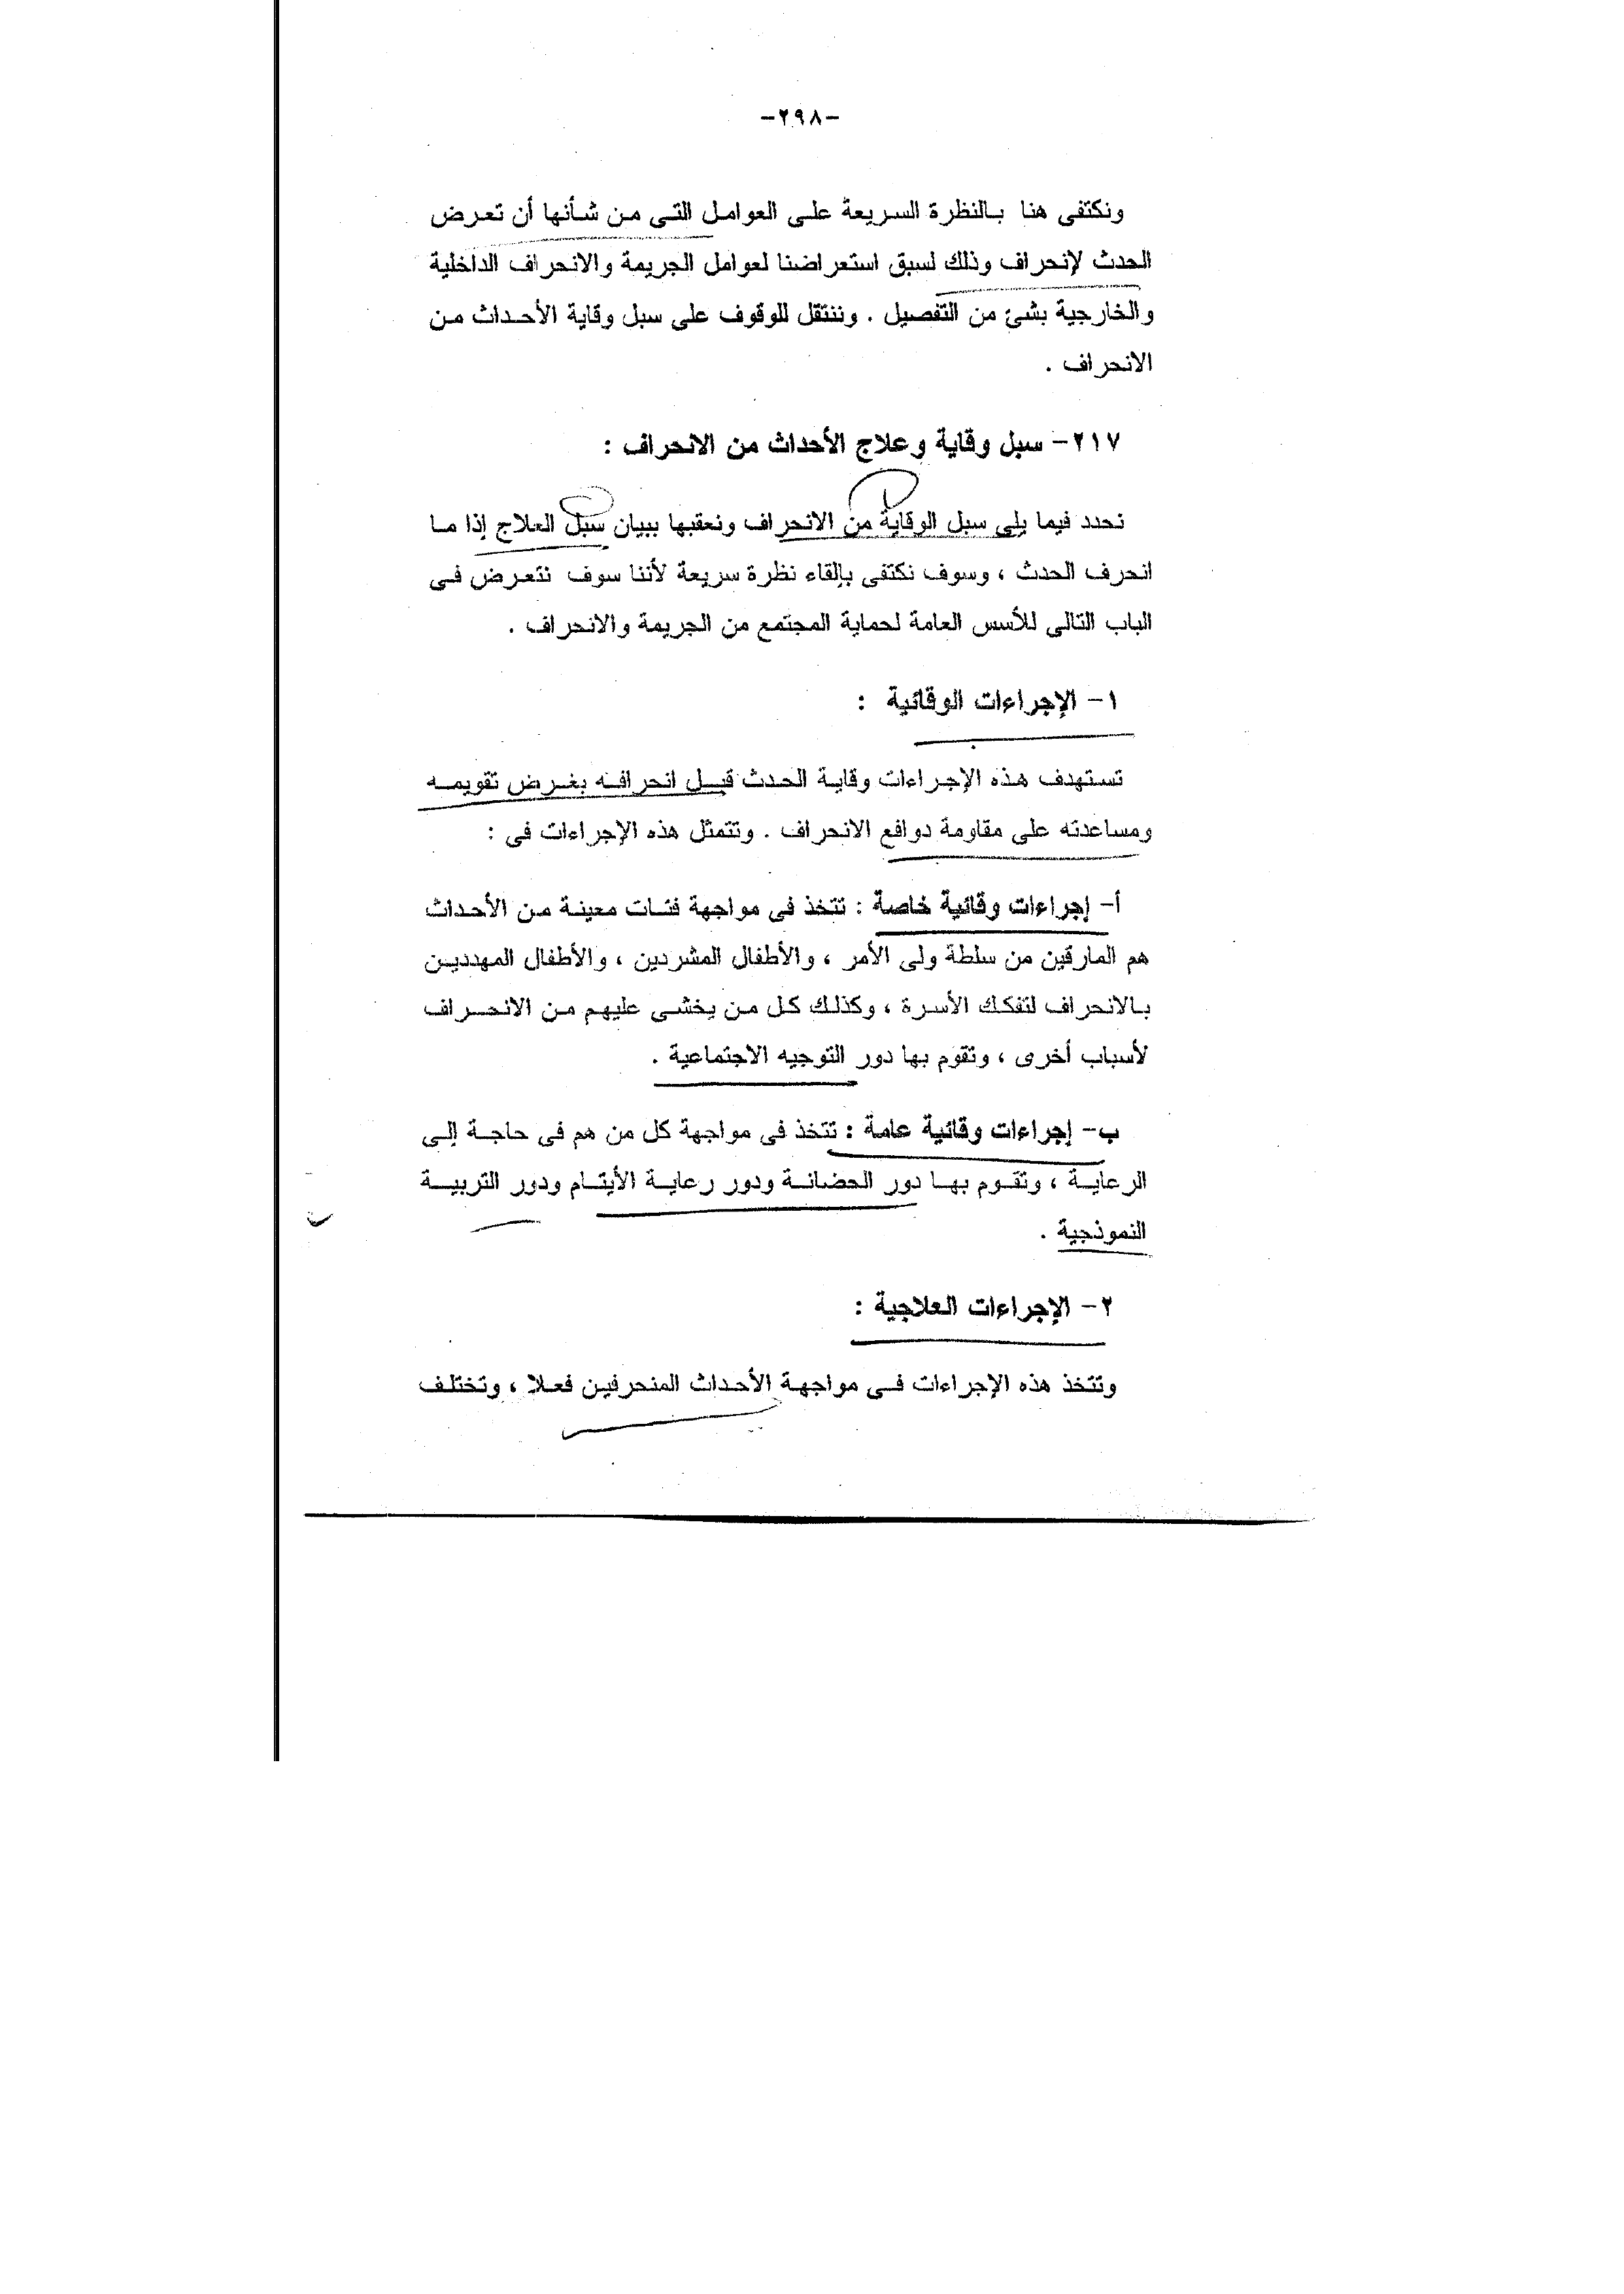 -٢٩٨-
ونكتفى هنا بالنظرة السريعة على العوامل التى من شأنها أن تعرض
الحدث لإنحراف وذلك لسبق استعراضنا لعوامل الجريمة والانحراف الداخلية
والخارجية بشئ من التفصيل . وننتقل للوقوف على سبل وقاية الأحداث من
الانحراف .
٢١٧- سبل وقاية وعلاج الأحداث من الانحراف :
نحدد فيما يلى سبل الوقاية من الانحراف ونعقبها ببيان سبل العلاج إذا ما
انحرف الحدث ، وسوف نكتفى بإلقاء نظرة سريعة لأننا سوف نتعرض فى
الباب التالى للأسس العامة لحماية المجتمع من الجريمة والانحراف .
١- الإجراءات الوقائية :
تستهدف هذه الإجراءات وقاية الحدث قبل انحرافه بغرض تقويمه
ومساعدته على مقاومة دوافع الانحراف . وتتمثل هذه الإجراءات فى :
أ- إجراءات وقائية خاصة : تتخذ فى مواجهة فئات معينة من الأحداث
هم المارقين من سلطة ولى الأمر ، والأطفال المشردين ، والأطفال المهددين
بالانحراف لتفكك الأسرة ، وكذلك كل من يخشى عليهم من الانحراف
لأسباب أخرى ، وتقوم بها دور التوجيه الاجتماعية .
ب- إجراءات وقائية عامة : تتخذ فى مواجهة كل من هم فى حاجة إلى
الرعاية ، وتقوم بها دور الحضانة ودور رعاية الأيتام ودور التربية
النموذجية .
٢- الإجراءات العلاجية :
وتتخذ هذه الإجراءات فى مواجهة الأحداث المنحرفين فعلا ، وتختلف